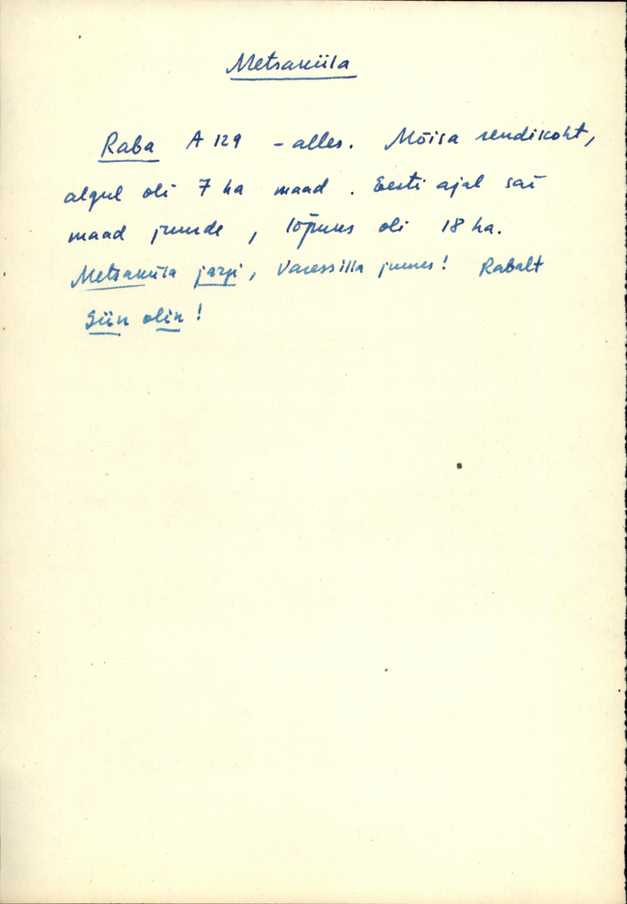 Metsaküla
Raba A 129 - alles. Mõisa rendikoht,
algul oli 7 ha maad. Eesti ajal sai
maad juurde, lõpuks oli 18 ha.
Metsaküla järgi, Varessilla juures! Rabalt
Siin olin!